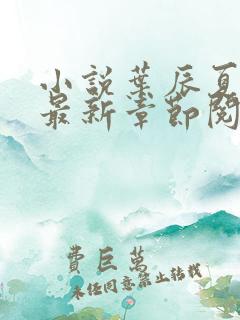 小説葉辰夏
最新章節閱
費巨萬
未經同意禁止轉載